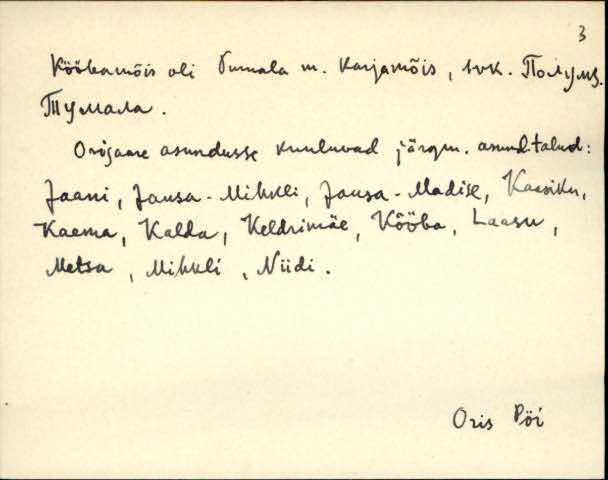 3
Kööbamõis oli Tumala m. karjamõis, 1vk. Полумз.
Тумала.
Orisaare asundusse kuuluvad järgm. asund.talud:
Jaani, Jausa-Mihkli, Jausa-Madise, Kaasiku,
Kaema, Kalda, Keldrimäe, Kõõba, Laasu,
Metsa, Mihkli, Niidi.
Oris Pöi